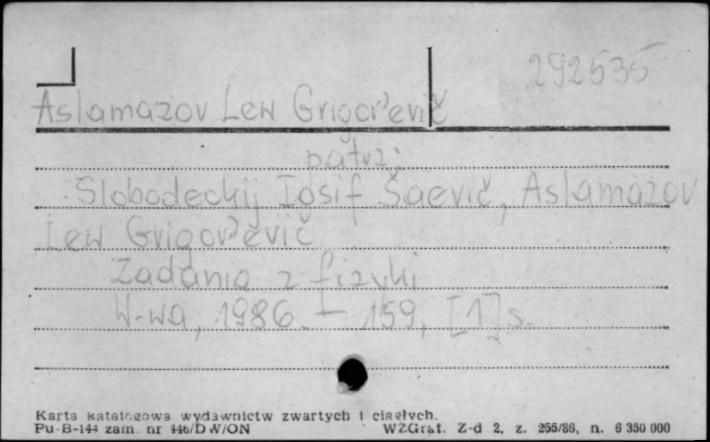 292535
Aslamazov Lew Grigor'evič
patrz:
Slobodeckij Iosif Šaevič, Aslamazov
Lew Grigor'evič
Zadania z fizyki
W-wa, 1986. – 159, [1] s.
Karta katalogowa wydawnictw zwartych i ciągłych.
Pu-B-144 zam. nr 446/DW/ON WZGraf. Z-d 2, z. 255/86, n. 6 350 000